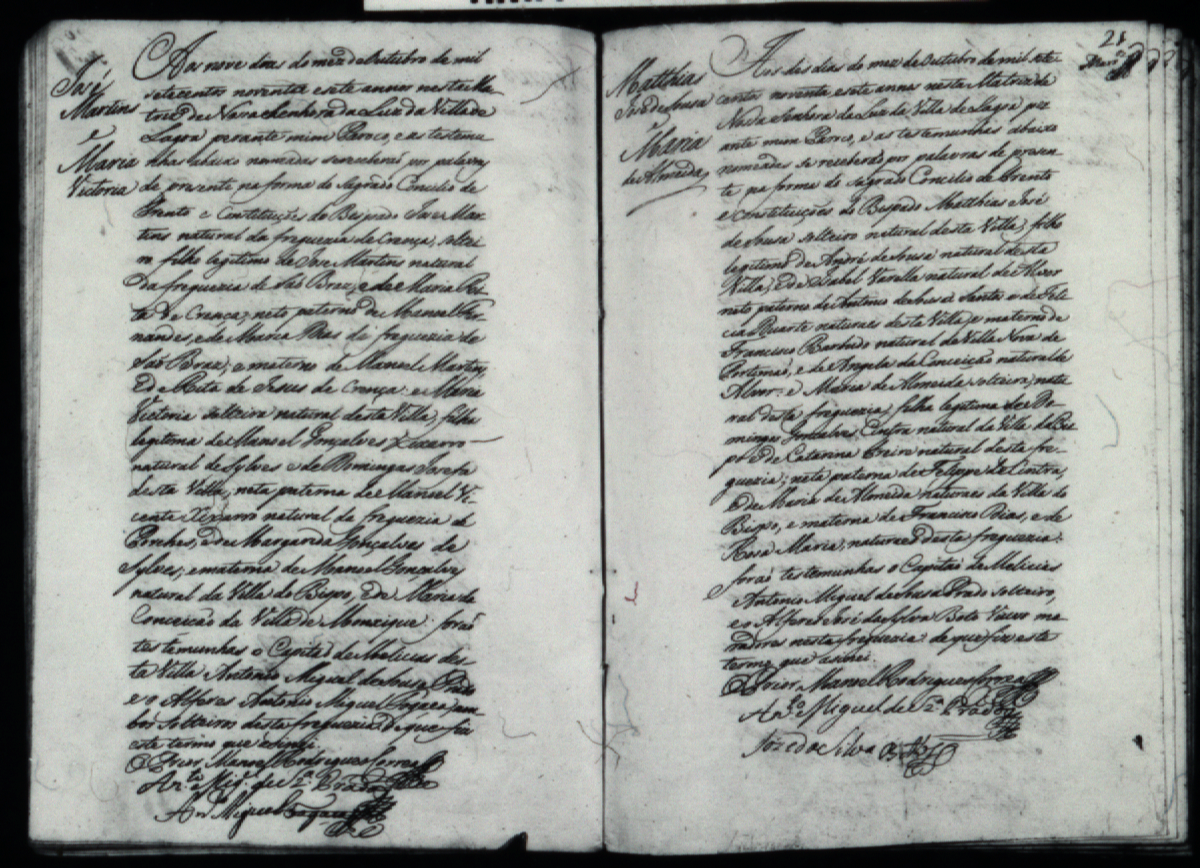 José
Martins
e
Maria
Victoria
Aos nove dias do mez de Outubro de mil
setecentos noventa e sete annos nesta Ma-
triz de Nossa Senhora da Luz da Villa de
Lagoa perante mim Paroco, e as testemu
nhas abaixo nomeadas se receberaõ por palavras
de presente na forma do Sagrado Concilio de
Trento e Constituiçoes do Bispado Jose Mar-
tins natural da freguezia de Crença, soltei
ro filho legitimo de Jose Martins natural
da freguezia de Saõ Braz, e de Maria
ta de Crença; neto paterno de Manoel Fer-
nandes, e de Maria Dias da freguezia de
Saõ Braz; e materno de Manoel Martins,
e de Rita de Jesus de Crença: e Maria
Victoria solteira natural desta Villa, filha
legitima de Manoel Gonçalves Xixarro
natural de Sylves e de Domingas Josefa
desta Villa; neta paterna de Manoel Vi-
cente Xixarro natural da freguezia de
Porches, e de Margarida Gonçalves de
Sylves; e materna de Manoel Gonçalves
natural da Villa do Bispo, e de Maria da
Conceicaõ da Villa de Monxique: foraõ
testemunhas o Capitaõ de Melicias des-
ta Villa Antonio Miguel de Sousa Prado
e o Alferes Antonio Miguel am-
bos solteiros desta freguezia de que fiz
este termo que asinei.
O Prior Manoel Rodrigues Correa
Ant.º Mig.l de S.ª Prado
Ant.º Miguel
21
Matthias
José de Sousa
e
Maria
de Almeida
Aos des dias do mez de Outubro de mil sete-
centos noventa e sete annos nesta Matriz de
Nossa Senhora da Luz da Villa de Lagoa per
ante mim Paroco, e as testemunhas abaixo
nomeadas se receberaõ por palavras de presen-
te na forma do sagrado Concilio de Trento
e constituições do Bispado Matthias José
de Sousa solteiro natural desta Villa, filho
legitimo de André de Sousa natural desta
Villa, e de Isabel Varella natural de Alvor
neto paterno de Antonio de Sousa Santa e de Feli-
cia Duarte naturaes desta Villa, e materno de
Francisco Barbudo natural da Villa Nova de
Portimaõ, e de Angela da Conceição natural de
Alvor: e Maria de Almeida solteira, natu-
ral desta freguezia, filha legitima de Do-
mingos Gonçalves Cintra natural da Villa do Bis-
po e de Catarina natural desta fre-
guezia; neta paterna de Felippe de Cintra,
e de Maria de Almeida naturaes da Villa do
Bispo, e materna de Francisco Dias, e de
Rosa Maria, naturaes desta freguezia:
foraõ testemunhas o Capitaõ de Melicias
Antonio Miguel de Sousa Prado solteiro,
e o Alferes José da Sylva Boto Viuvo mo-
radores nesta freguezia de que fiz este
termo que asinei.
O Prior Manoel Rodrigues Correa
Ant.º Miguel de S.ª Prado
Joze da Silva